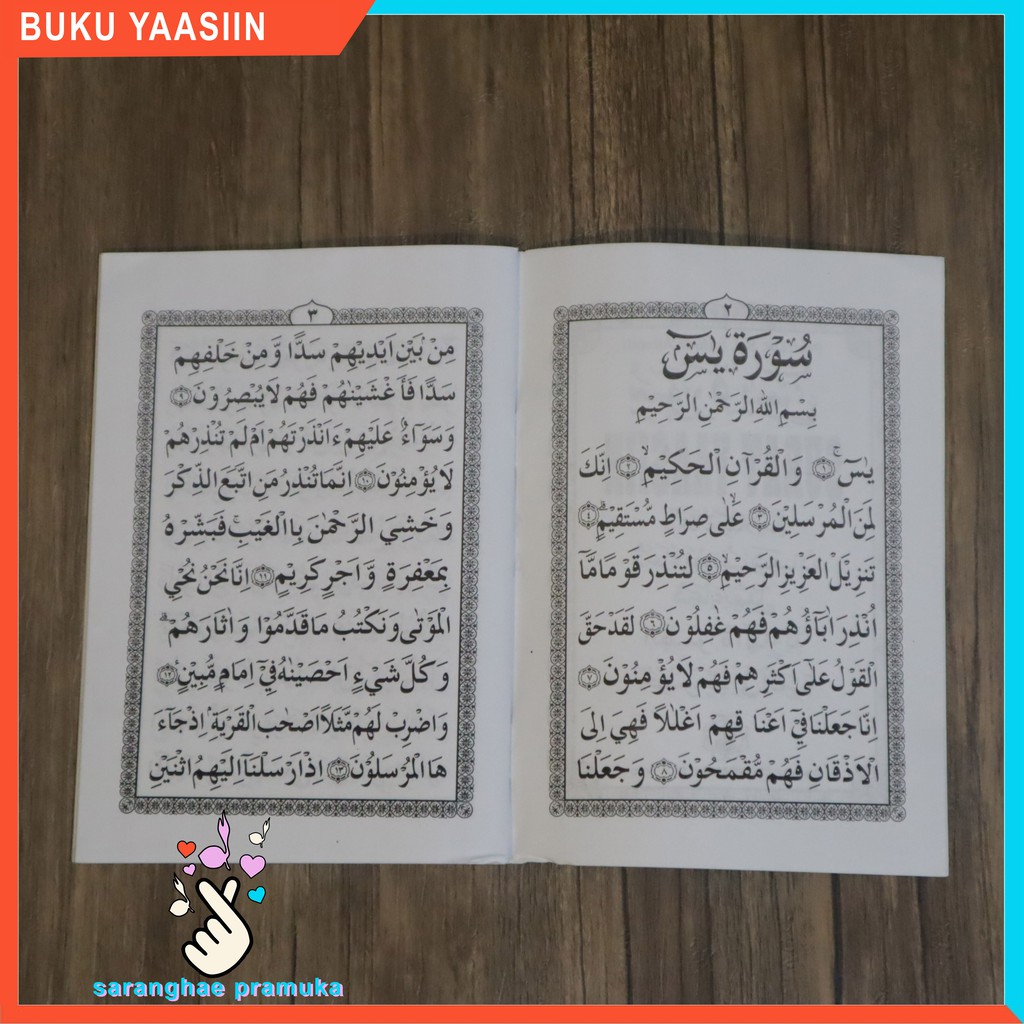 BUKU YAASIIN
٢
سُوْرَةُ يٰسٓ
بِسْمِ اللهِ الرَّحْمٰنِ الرَّحِيْمِ
يٰسٓ ۚ ﴿١﴾ وَالْقُرْآنِ الْحَكِيْمِۙ ﴿٢﴾ اِنَّكَ
لَمِنَ الْمُرْسَلِيْنَۙ ﴿٣﴾ عَلٰى صِرَاطٍ مُّسْتَقِيْمٍۗ ﴿٤﴾
تَنْزِيْلَ الْعَزِيْزِ الرَّحِيْمِۙ ﴿٥﴾ لِتُنْذِرَ قَوْمًا مَّآ
اُنْذِرَ اٰبَآؤُهُمْ فَهُمْ غٰفِلُوْنَ ﴿٦﴾ لَقَدْ حَقَّ
الْقَوْلُ عَلٰٓى اَكْثَرِهِمْ فَهُمْ لَا يُؤْمِنُوْنَ ﴿٧﴾
اِنَّا جَعَلْنَا فِيْٓ اَعْنَاقِهِمْ اَغْلٰلًا فَهِيَ اِلَى
الْاَذْقَانِ فَهُمْ مُّقْمَحُوْنَ ﴿٨﴾ وَجَعَلْنَا
٣
مِنْ بَيْنِ اَيْدِيْهِمْ سَدًّا وَّمِنْ خَلْفِهِمْ
سَدًّا فَاَغْشَيْنٰهُمْ فَهُمْ لَا يُبْصِرُوْنَ ﴿٩﴾
وَسَوَآءٌ عَلَيْهِمْ ءَاَنْذَرْتَهُمْ اَمْ لَمْ تُنْذِرْهُمْ
لَا يُؤْمِنُوْنَ ﴿١٠﴾ اِنَّمَا تُنْذِرُ مَنِ اتَّبَعَ الذِّكْرَ
وَخَشِيَ الرَّحْمٰنَ بِالْغَيْبِۚ فَبَشِّرْهُ
بِمَغْفِرَةٍ وَّاَجْرٍ كَرِيْمٍ ﴿١١﴾ اِنَّا نَحْنُ نُحْيِ
الْمَوْتٰى وَنَكْتُبُ مَا قَدَّمُوْا وَاٰثَارَهُمْۗ
وَكُلَّ شَيْءٍ اَحْصَيْنٰهُ فِيْٓ اِمَامٍ مُّبِيْنٍ ﴿١٢﴾
وَاضْرِبْ لَهُمْ مَّثَلًا اَصْحٰبَ الْقَرْيَةِۘ اِذْ جَآءَ
هَا الْمُرْسَلُوْنَ ﴿١٣﴾ اِذْ اَرْسَلْنَآ اِلَيْهِمُ اثْنَيْنِ
saranghae pramuka